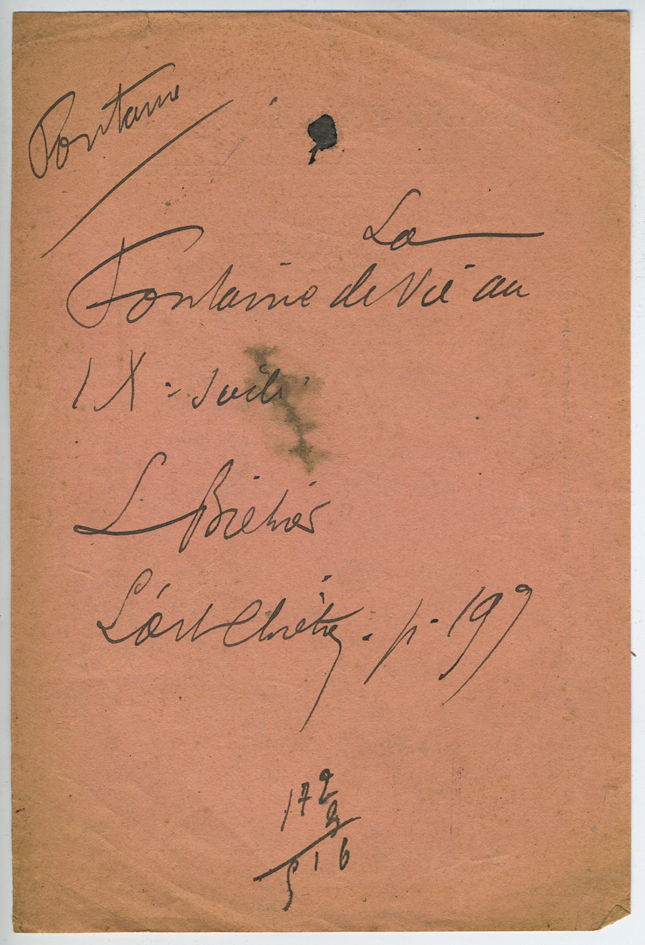 Fontaine
La
Fontaine de Vie au
IX - siècle
L. Bréhier
L'art Chrétien - p. 199
172
3
516